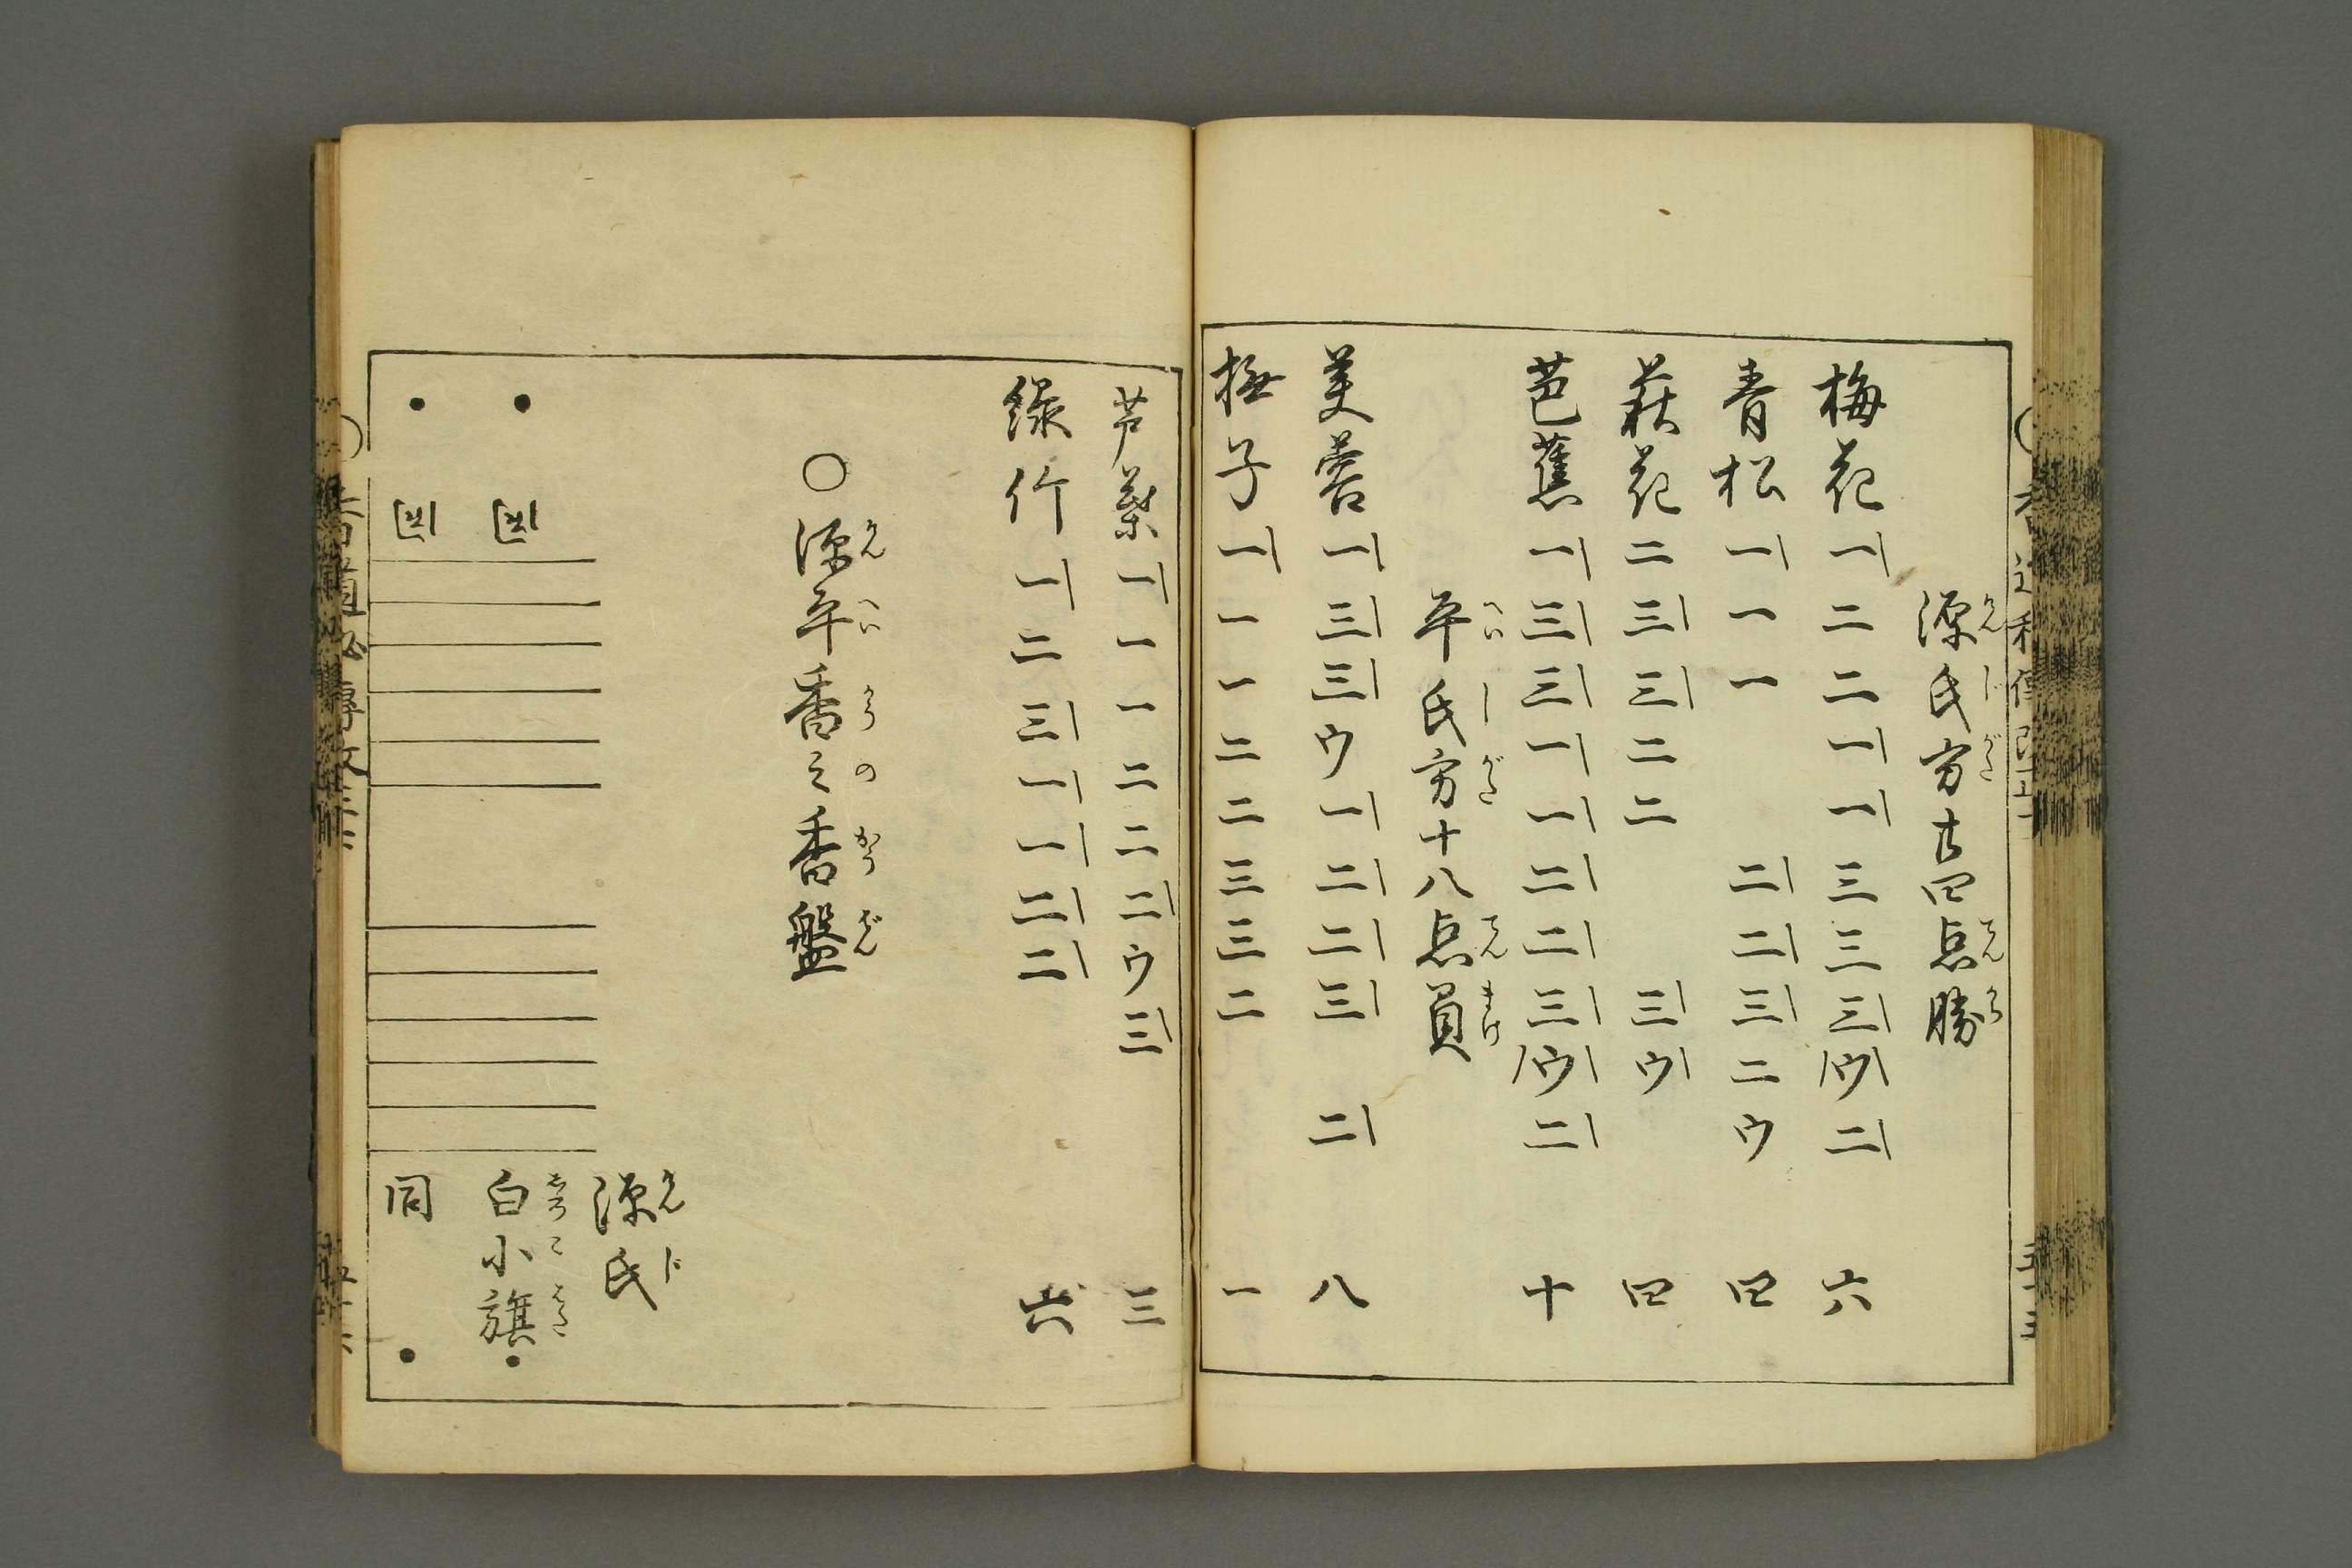 源氏方廿四点勝
梅花 一 二 二 一 一 三 三 三 ウ 二 六
青松 一 一 一 二 二 三 二 ウ 四
萩花 二 三 三 二 二 三 ウ 四
芭蕉 一 三 三 一 一 二 二 三 ウ 二 十
平氏方十八点負
芙蓉 一 三 三 ウ 一 二 二 三 二 八
撫子 一 一 一 二 二 三 三 二 一
芦葉 一 一 一 二 二 二 ウ 三 三
緑竹 一 二 三 一 一 二 二 六
○源平香之香盤
げんへいかうのかうばん
源氏
げんじ
白小旗
同